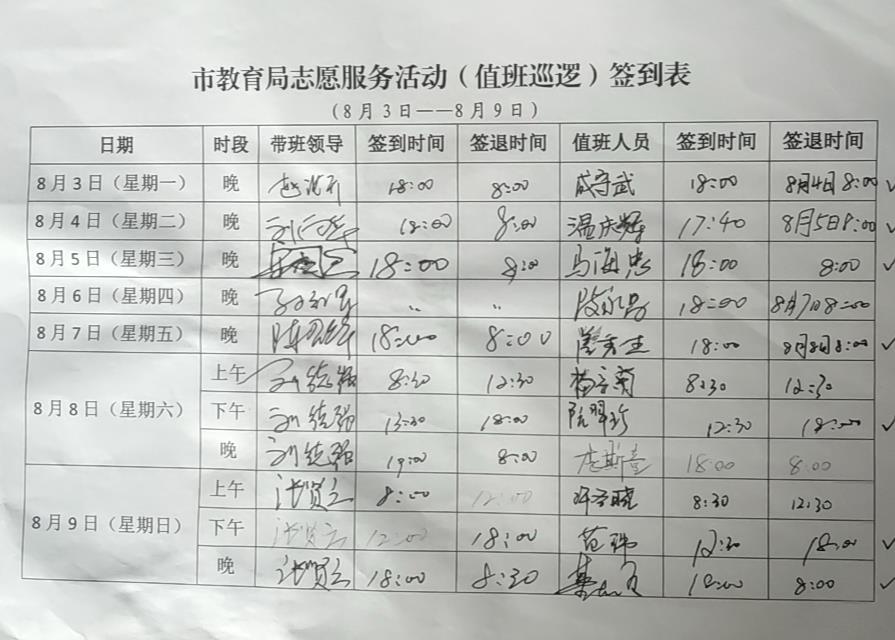 市教育局志愿服务活动（值班巡逻）签到表
（8月3日——8月9日）
日期 时段 带班领导 签到时间 签退时间 值班人员 签到时间 签退时间
8月3日（星期一） 晚 18:00 8:00 戚守武 18:00 8月4日8:00 ✓
8月4日（星期二） 晚 18:00 8:00 温庆辉 17:40 8月5日8:00 ✓
8月5日（星期三） 晚 18:00 8:00 马海忠 18:00 8:00 ✓
8月6日（星期四） 晚 〃 〃 18:00 8月7日8:00
8月7日（星期五） 晚 18:00 8:00 18:00 8月8日8:00 ✓
8月8日（星期六） 上午 刘统强 8:30 12:30 8:30 12:30
下午 刘统强 13:30 18:00 12:30 18:00 ✓
晚 刘统强 19:00 8:00 18:00 8:00
8月9日（星期日） 上午 8:00 12:00 8:30 12:30
下午 12:00 18:00 范玮 12:30 18:00 ✓
晚 18:00 8:30 18:00 8:00 ✓